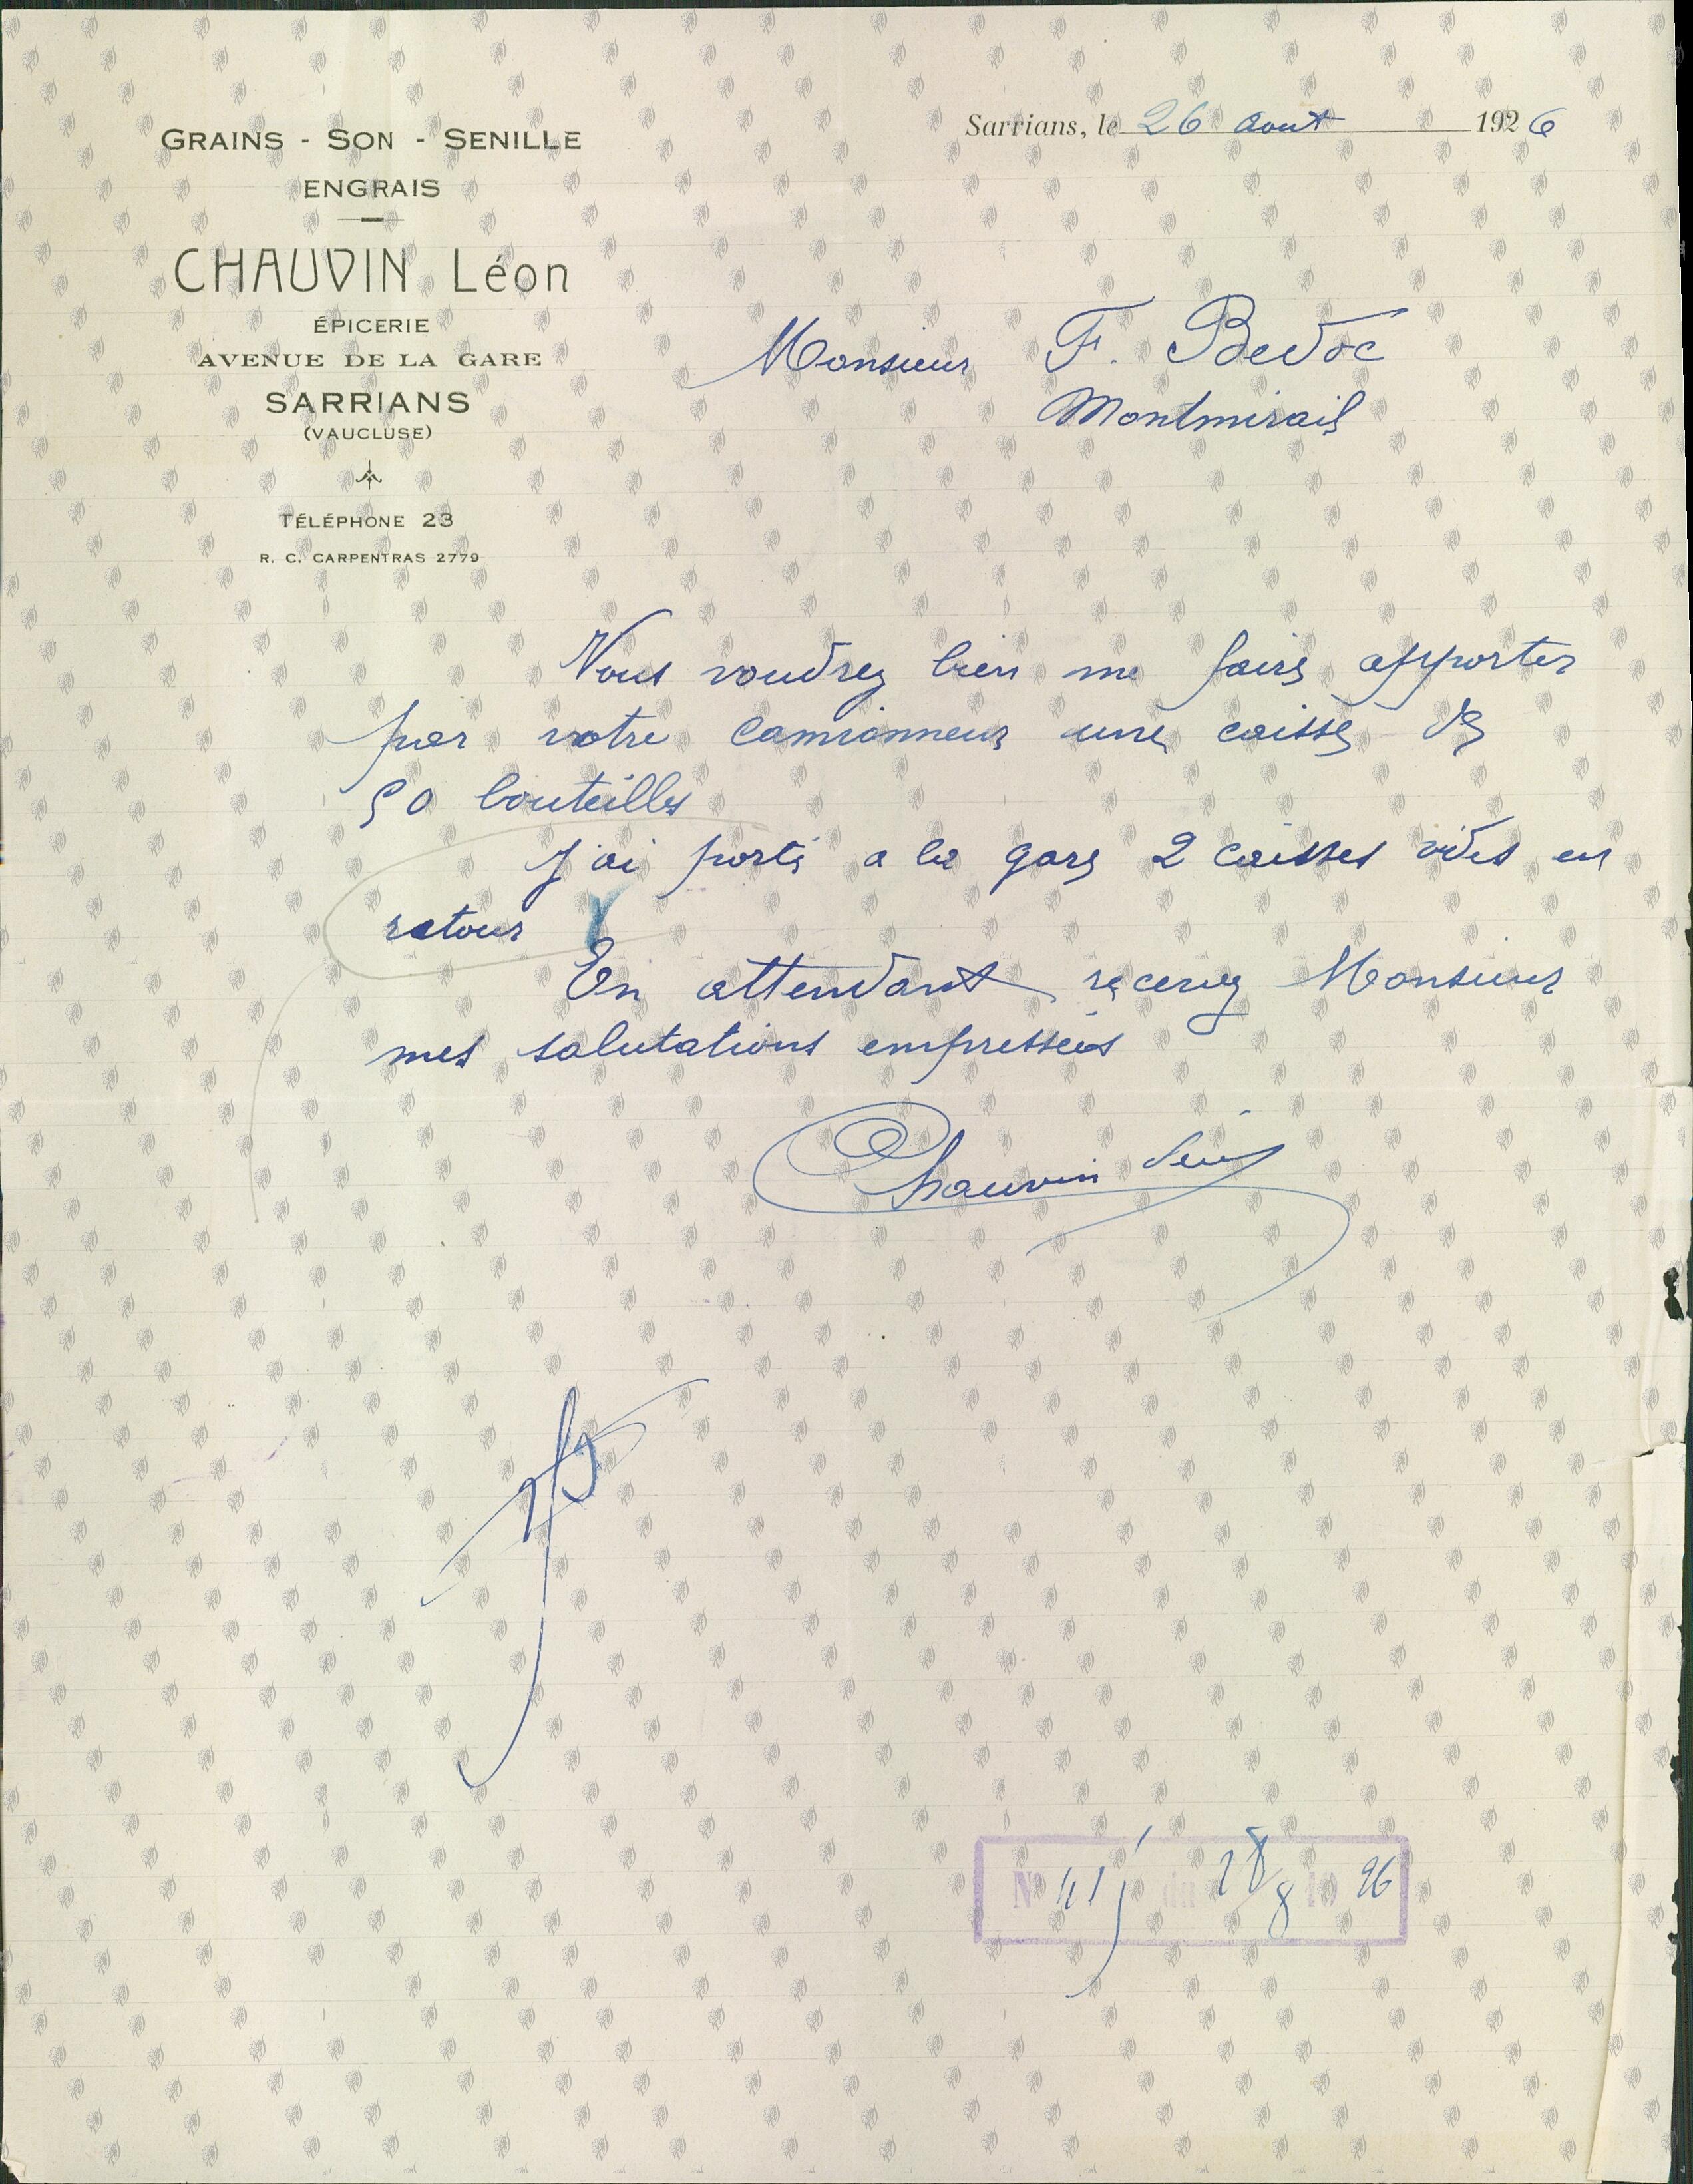 GRAINS - SON - SENILLE
ENGRAIS
CHAUVIN Léon
ÉPICERIE
AVENUE DE LA GARE
SARRIANS
(VAUCLUSE)
TÉLÉPHONE 23
R. C. CARPENTRAS 2779
Sarrians, le 26 Aout 1926
Monsieur F. Bedoc
Montmirail
Vous voudrez bien me faire apporter
par votre camionneur une caisse de
50 bouteilles
J'ai porté a la gare 2 caisses vides en
retour
En attendant recevez Monsieur
mes salutations empressées
Chauvin Léon
No du 28/8 19 26